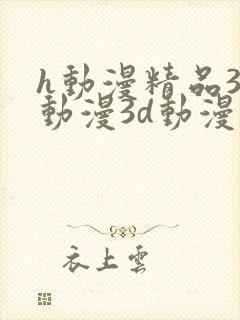 h動漫精品3
動漫3d動漫
衣上雲